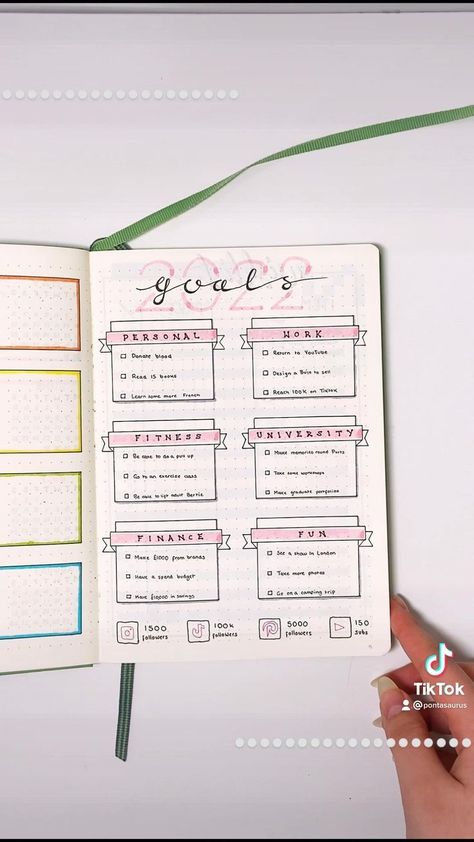 2022
goals
PERSONAL
Donate blood
Read 15 books
Learn some more French
WORK
Return to YouTube
Design a Bujo to sell
Reach 100K on TikTok
FITNESS
Be able to do a pull up
Go to an exercise class
Be able to lift Bertie
UNIVERSITY
Make memories round Ports
Take some workshops
Make graduate portfolio
FINANCE
Make £1000 from brands
Have a spend budget
Have £10000 in savings
FUN
See a show in London
Take more photos
Go on a camping trip
1500 followers
100k followers
5000 followers
150 subs
TikTok
@pontasaurus